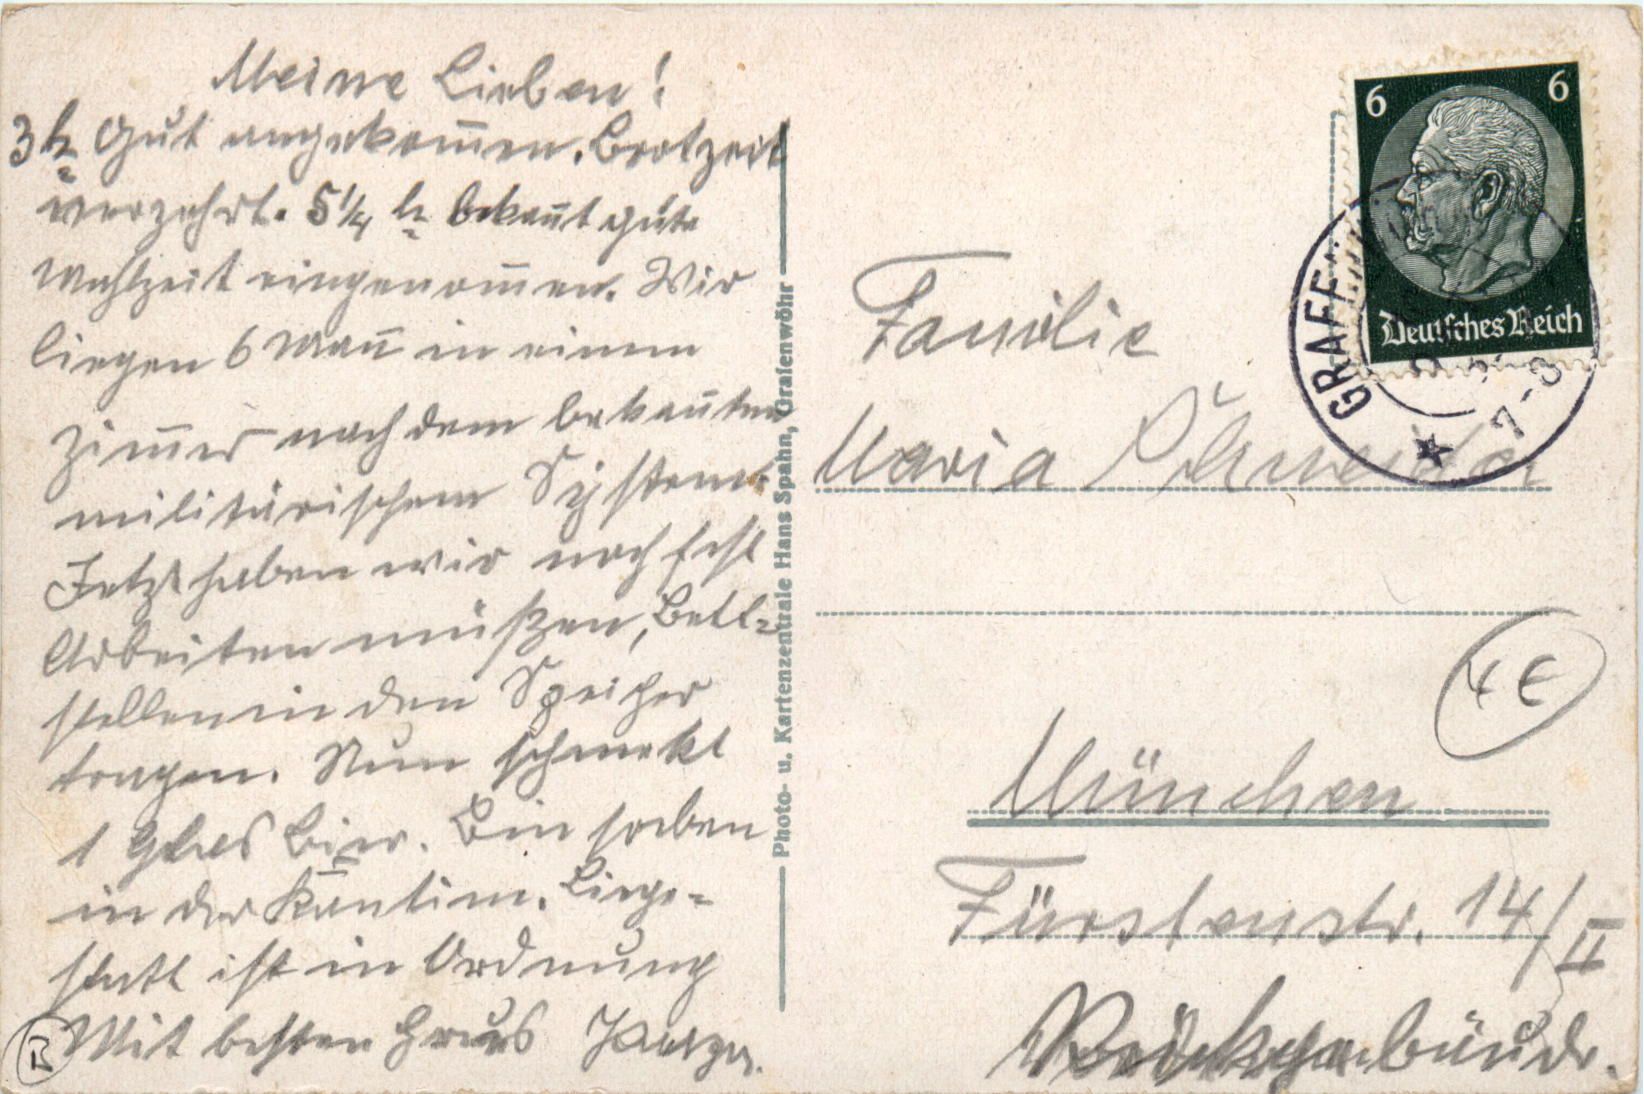 Meine Lieben!
3 h Gut angekom̅en. Brotzeit
verzehrt. 5 1/4 h bekan̅t gute
Mahlzeit eingenom̅en. Wir
liegen 6 Man̅ in einem
Zim̅er nach dem bekan̅ten
militärischem System.
Jetzt haben wir noch fest
Arbeiten müßen, Bett-
stellen in den Speicher
tragen. Nun schmekt
1 Glas Bier. Bin soeben
in der Kantine. Liege-
statt ist in Ordnung
Mit besten Grus
B
Photo- u. Kartenzentrale Hans Spahn, Grafenwöhr
6 6
Deutsches Reich
GRAFEN
7-8
Familie
Maria Schneider
München
Fürstenstr. 14/II
Rückgebäude.
4 €